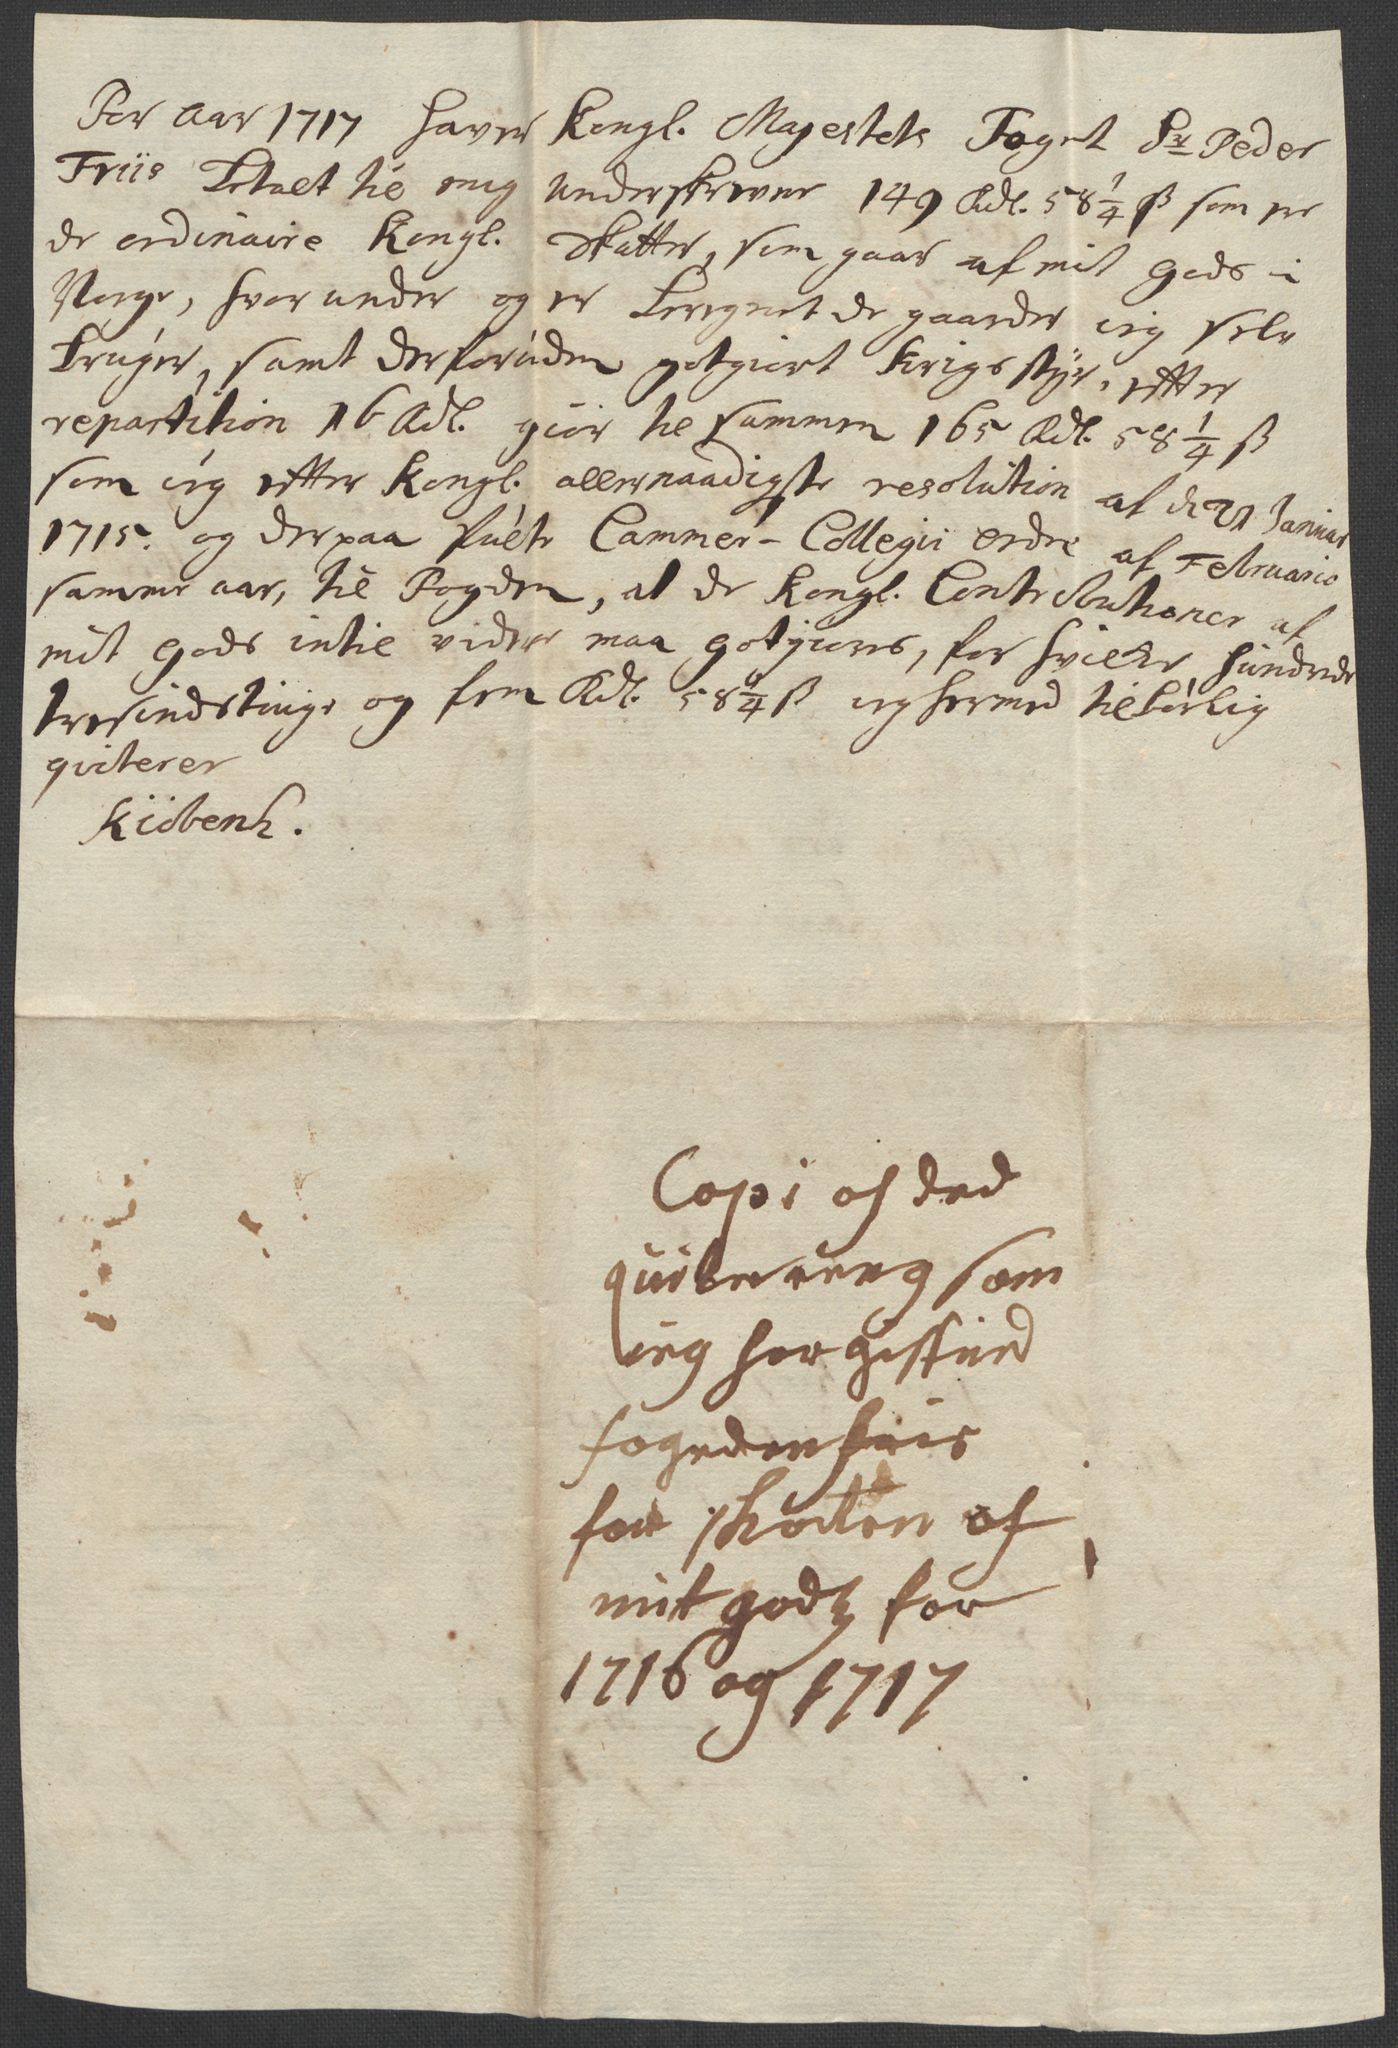 For Aar 1717 haver Kongl. Majestets Foget Sr Peder
Friis betalt til mig underskrevne 149 Rdl. 58 1/4 ß som er
de ordinaire Kongl. Skatter, som gaar af mit gods i
Norge, hvor under og er beregnet de gaarder ieg selv
bruger, samt derforuden gotgiort Krigs styr, efter
repartition 16 Rdl. giör til sammen 165 Rdl. 58 1/4 ß
som ieg efter Kongl. allernaadigste resolution af de 21 Januar
1715. og derpaa fulte Cammer-Collegii ordre af Februario
samme aar, til Fogden, at de Kongl. Contributioner af
mit gods intil videre maa gotgiøres, for hvilke hundrede
tresindstiuge og fem Rdl. 58 1/4 ß ieg hermed tilbörlig
qviterer
Kiöbenh.
Copi af ded
quitering som
ieg har giffued
fogeden friis
for skatten af
mit godtz for
1716 og 1717